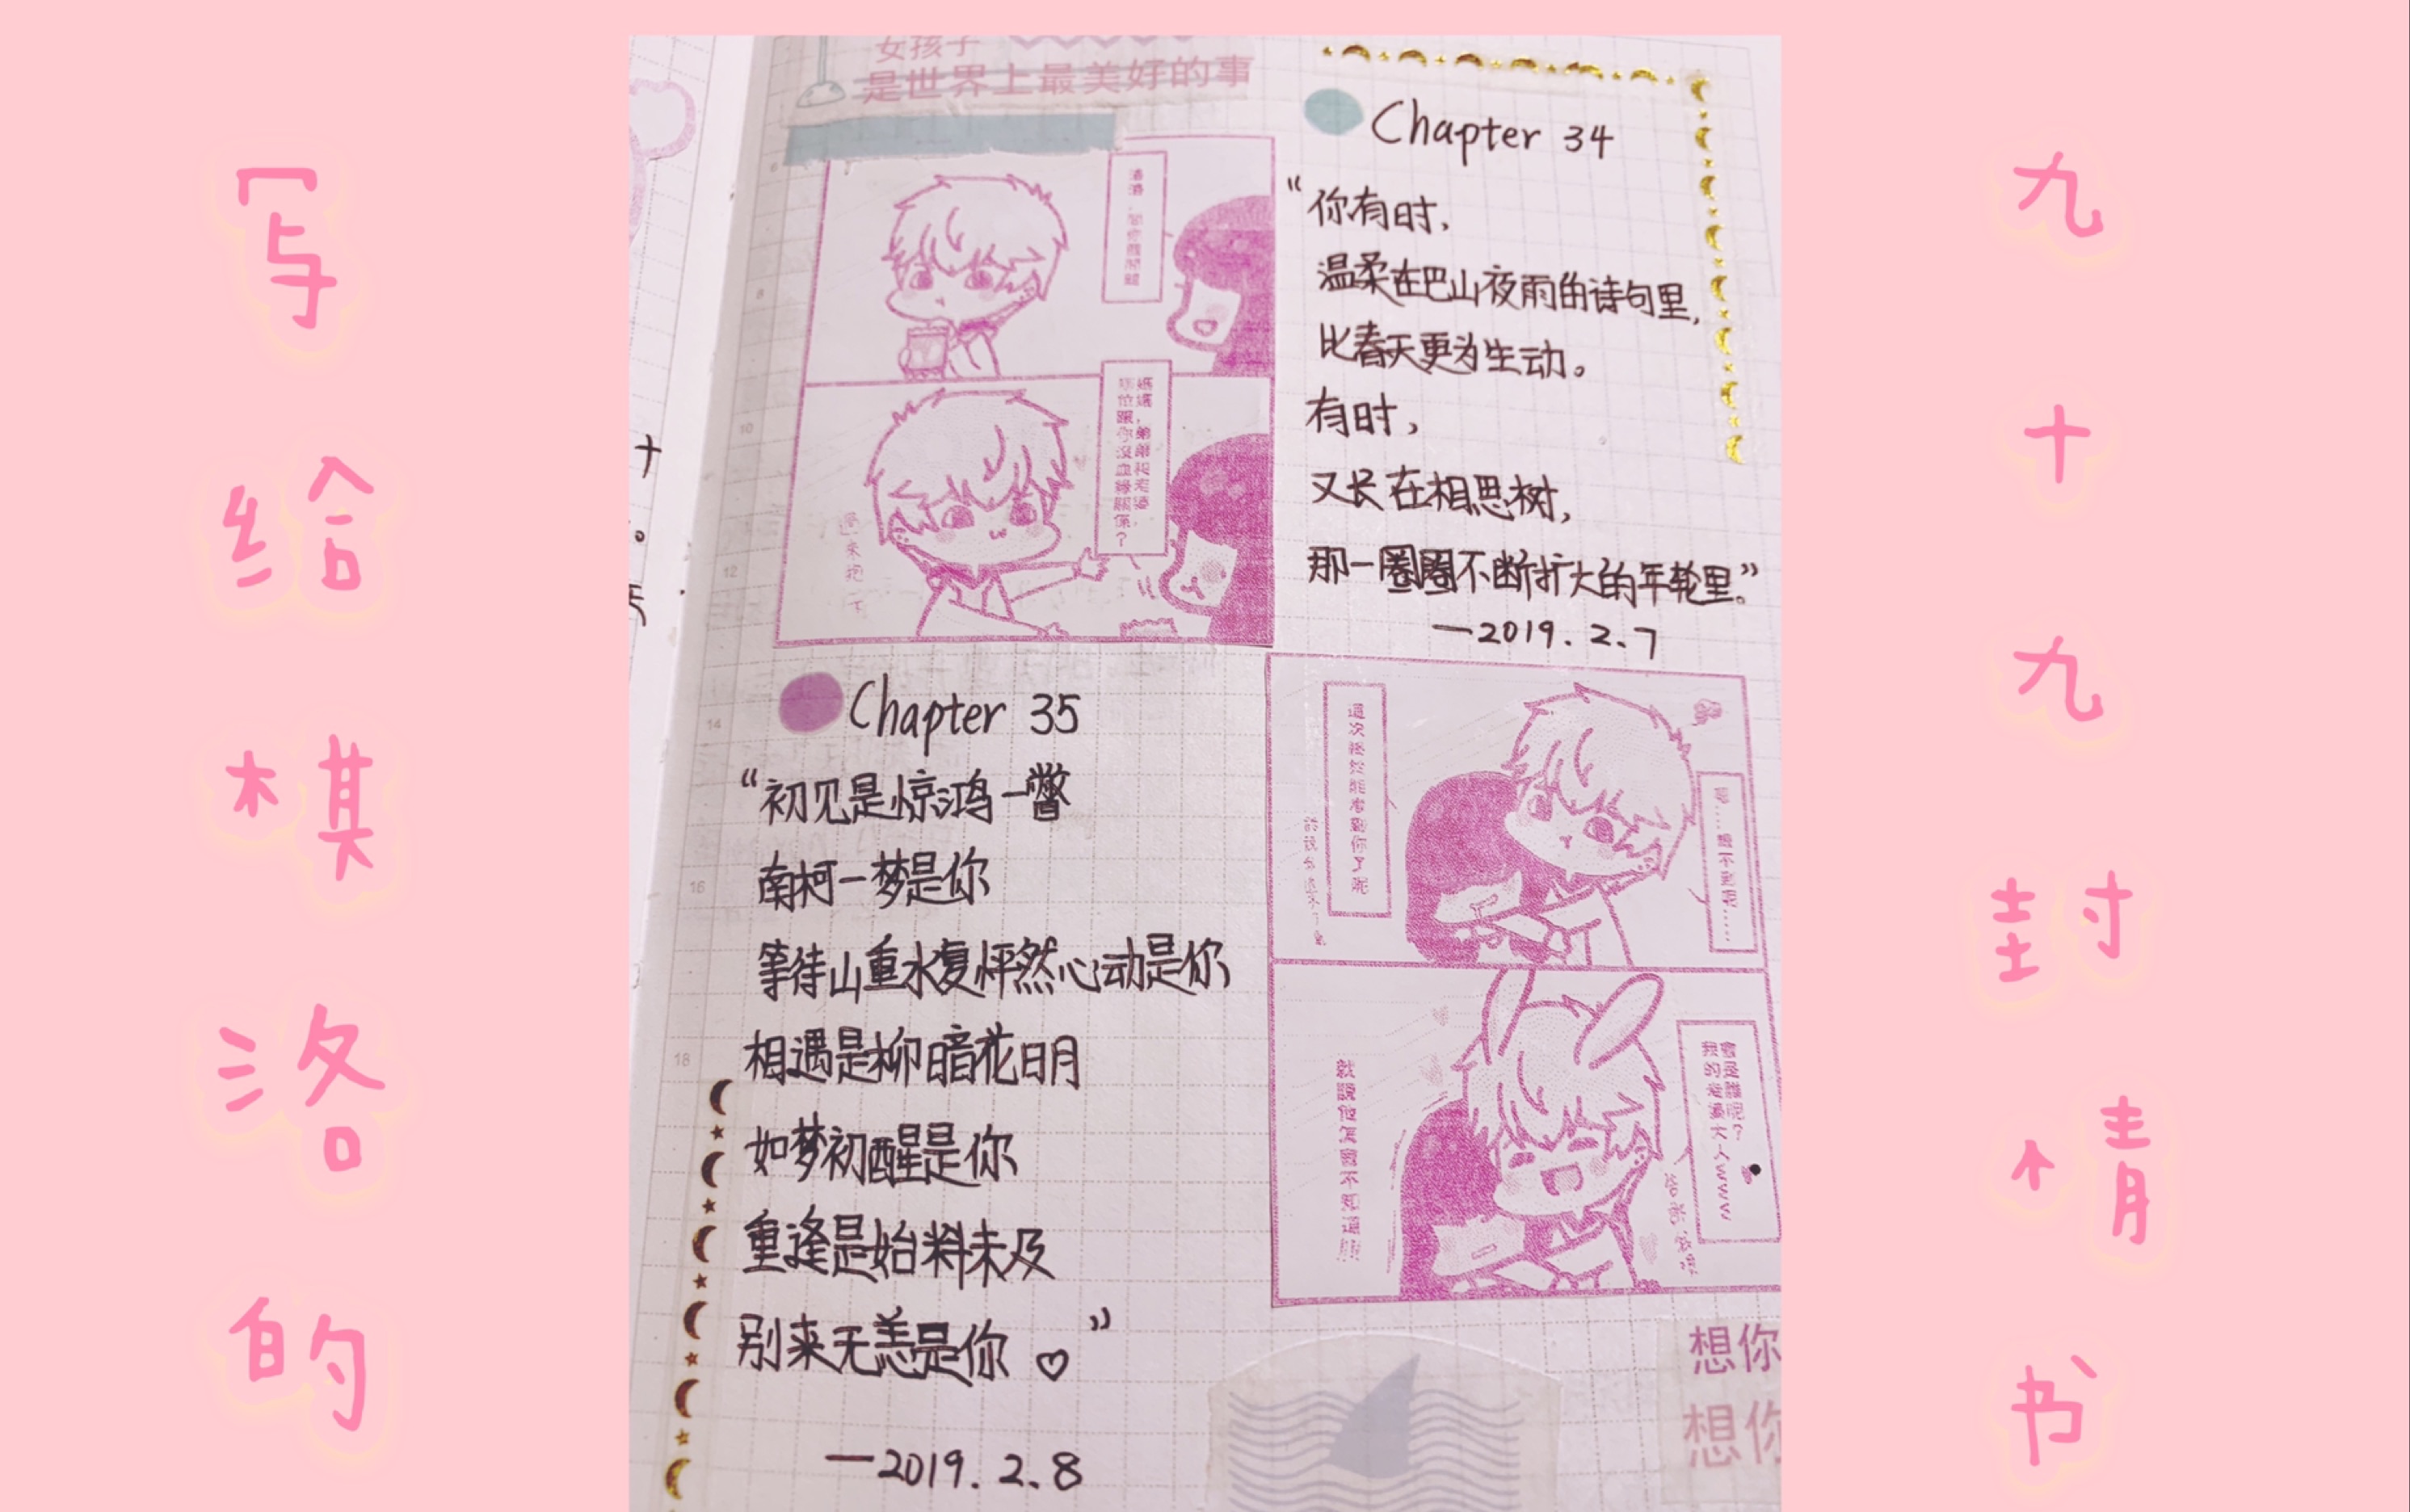 写给棋洛的
九十九封情书
女孩子
是世界上最美好的事
Chapter 34
“你有时，
温柔在巴山夜雨的诗句里，
比春天更为生动。
有时，
又长在相思树，
那一圈圈不断扩大的年轮里。”
—2019.2.7
Chapter 35
“初见是惊鸿一瞥
南柯一梦是你
等待山重水复怦然心动是你
相遇是柳暗花明
如梦初醒是你
重逢是始料未及
别来无恙是你♡”
—2019.2.8
就說他怎會不知道
想你
想你
6
8
10
12
14
16
18